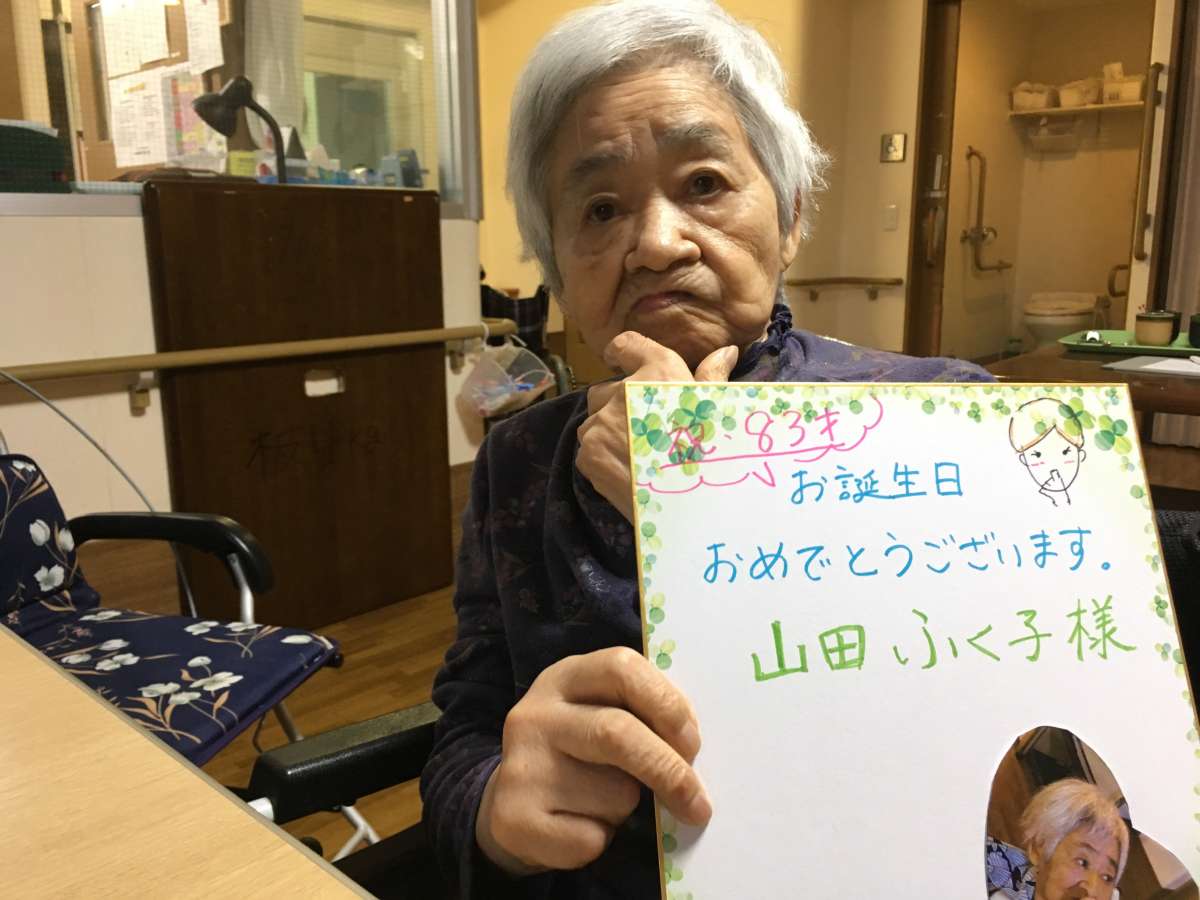 祝・83才
お誕生日
おめでとうございます。
山田 ふく子様